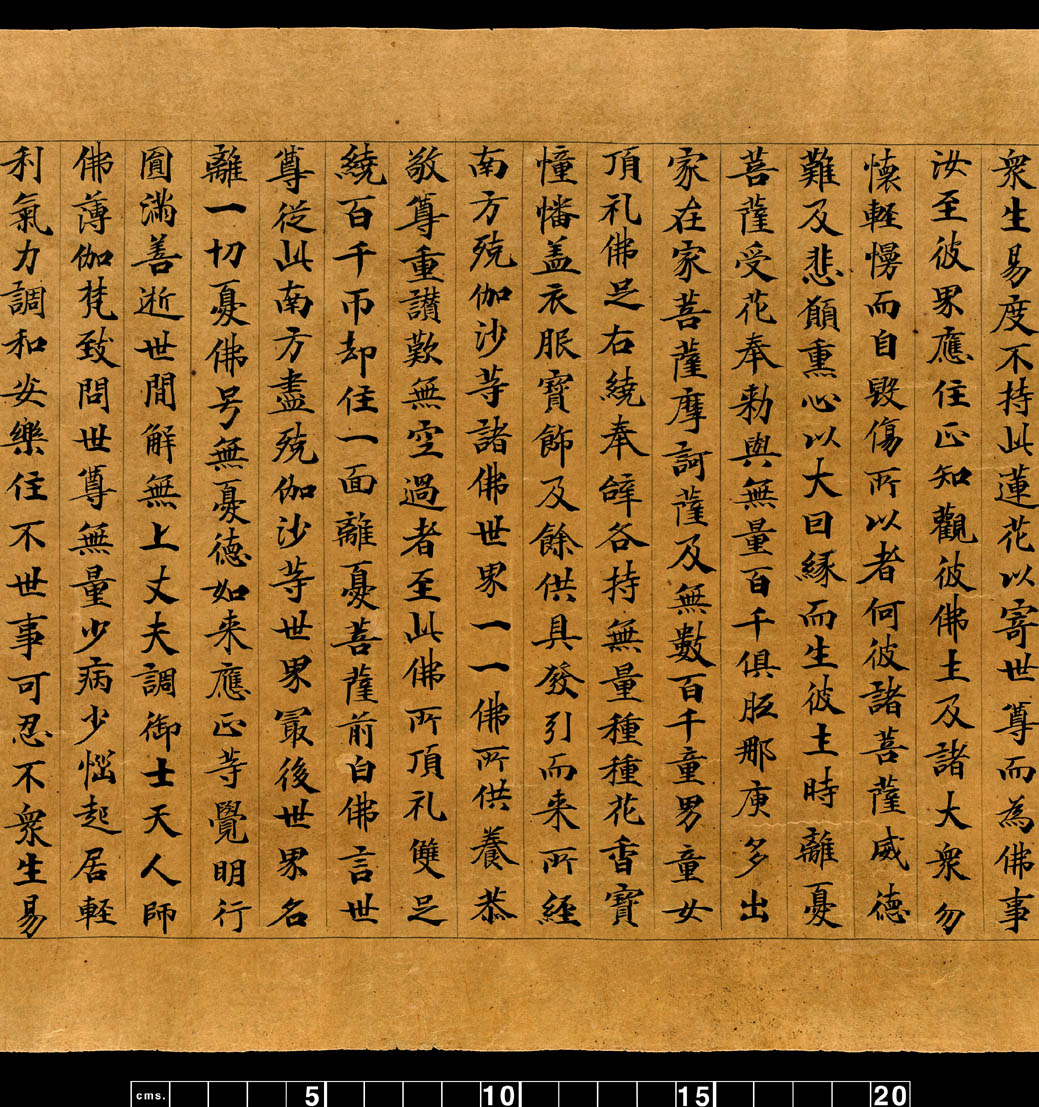 衆生易度不持此蓮花以寄世尊而為佛事
汝至彼界應住正知觀彼佛土及諸大衆勿
懷輕慢而自毀傷所以者何彼諸菩薩威德
難及悲願熏心以大因緣而生彼土時離憂
菩薩受花奉勅與無量百千俱胝那庾多出
家在家菩薩摩訶薩及無數百千童男童女
頂礼佛足右繞奉辞各持無量種種花香寶
幢幡盖衣服寶飾及餘供具發引而来所經
南方殑伽沙等諸佛世界一一佛所供養恭
敬尊重讃歎無空過者至此佛所頂礼雙足
繞百千帀却住一面離憂菩薩前白佛言世
尊從此南方盡殑伽沙等世界冣後世界名
離一切憂佛号無憂德如来應正等覺明行
圓滿善逝世間解無上丈夫調御士天人師
佛薄伽梵致問世尊無量少病少惱起居輕
利氣力調和安樂住不世事可忍不衆生易
5 10 15 20
cms.